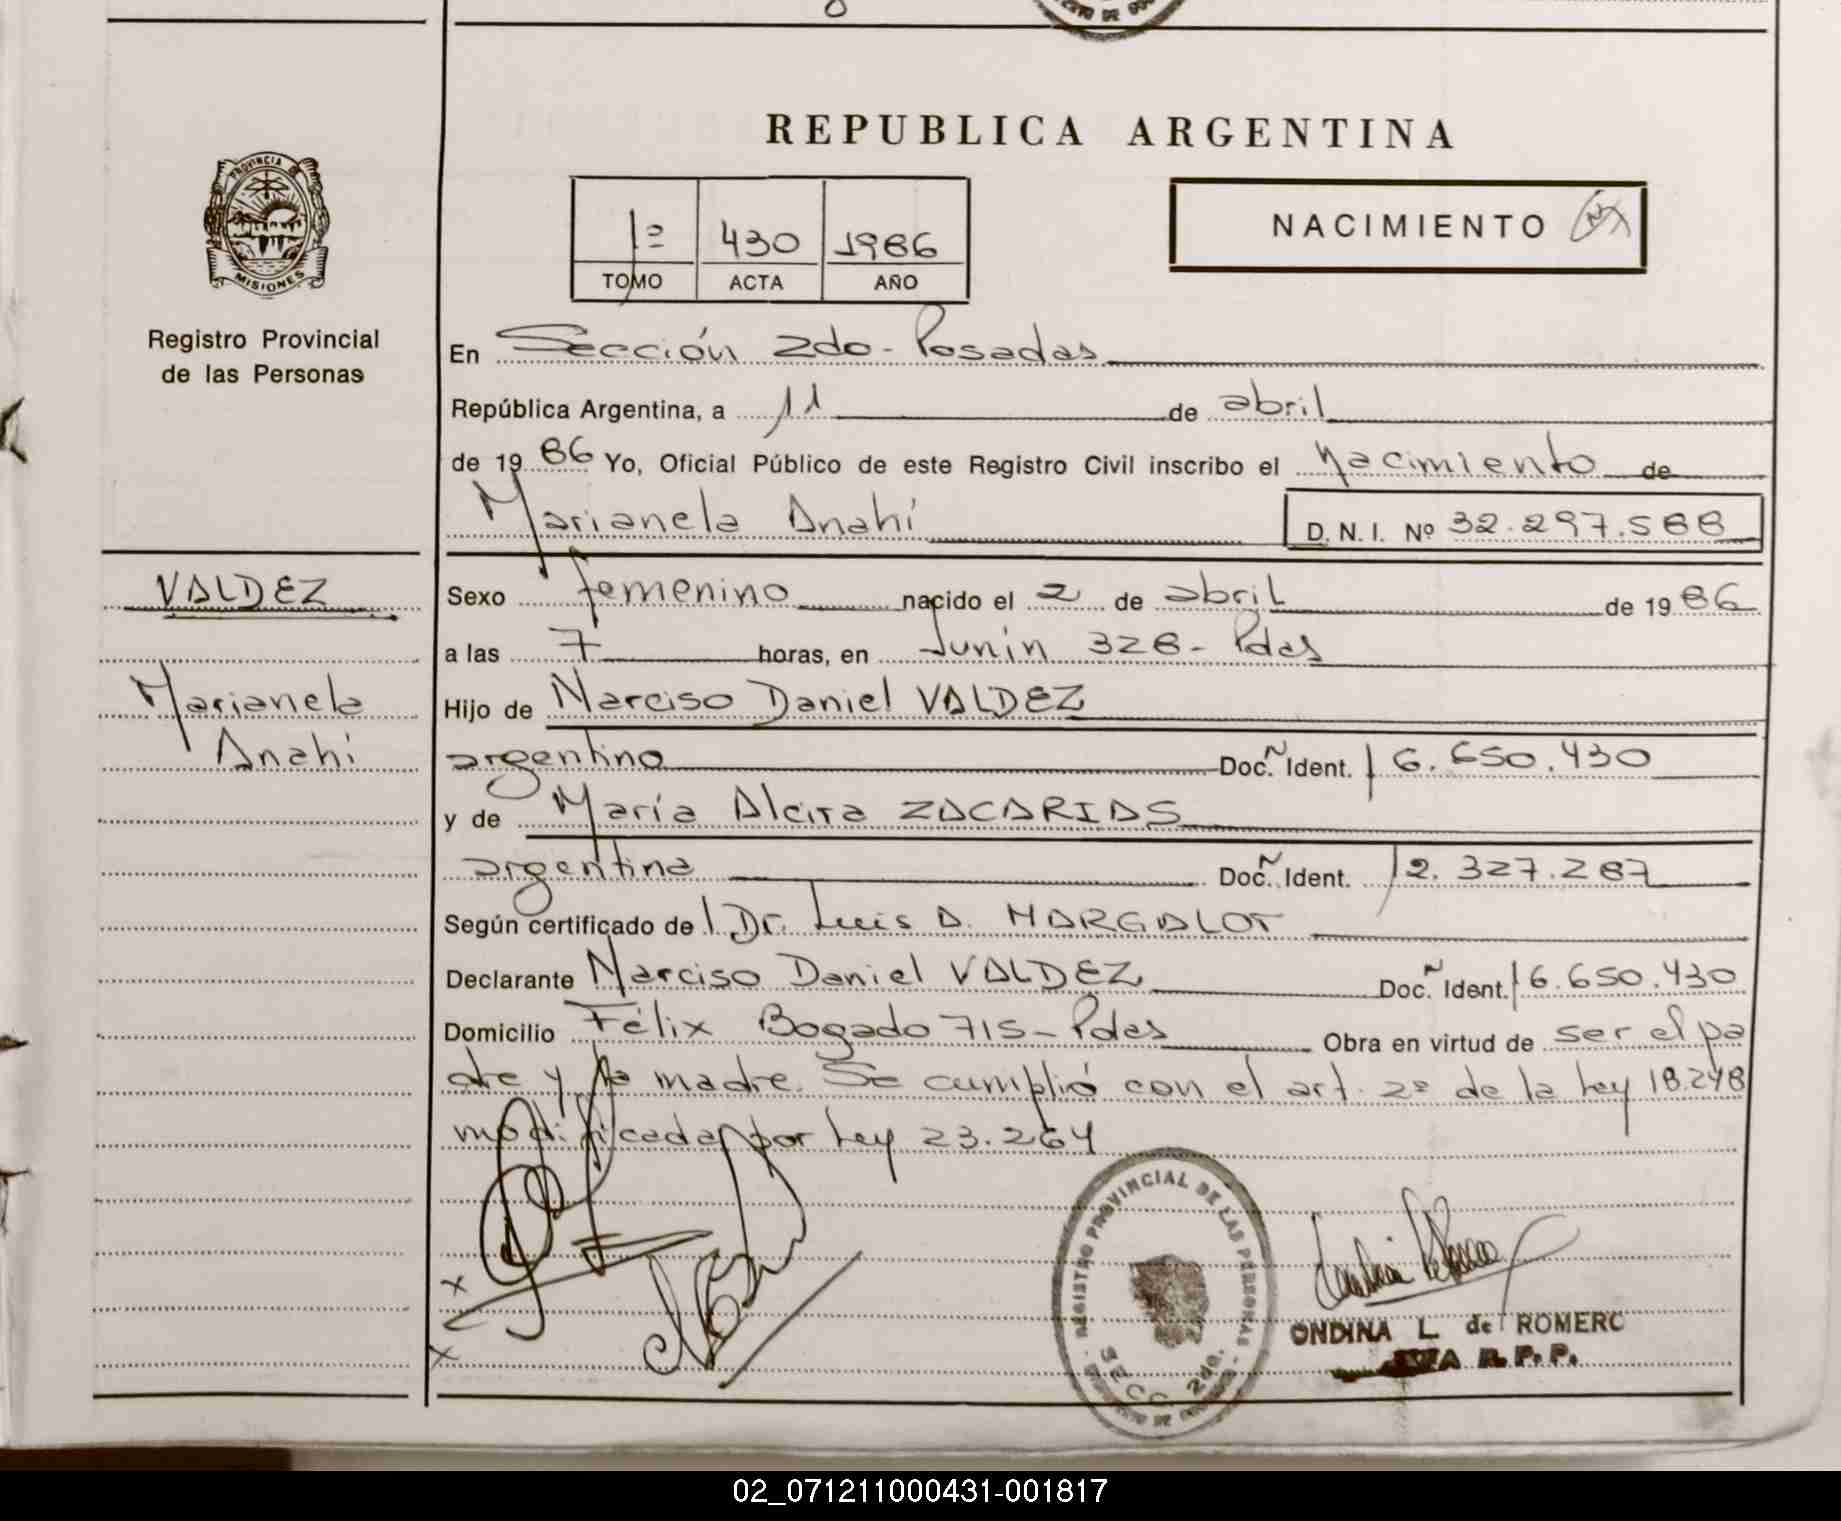 REPUBLICA ARGENTINA
PROVINCIA
MISIONES
Registro Provincial
de las Personas
1º 430 1986
TOMO ACTA AÑO
NACIMIENTO
En Sección 2do - Posadas
República Argentina, a 11 de abril
de 1986 Yo, Oficial Público de este Registro Civil inscribo el Nacimiento de
Marianela Anahí D. N. I. Nº 32.297.588
VALDEZ
Marianela
Anahí
Sexo femenino nacido el 2 de abril de 1986
a las 7 horas, en Junín 328 - Pdas
Hijo de Narciso Daniel VALDEZ
argentino Doc. Ident. 16.650.430
y de María Alcira ZACARIAS
argentina Doc. Ident. 12.327.287
Según certificado de Dr. Luis A. MARGALOT
Declarante Narciso Daniel VALDEZ Doc. Ident. 16.650.430
Domicilio Félix Bogado 715 - Pdas Obra en virtud de ser el pa
dre y la madre. Se cumplió con el art. 2º de la Ley 18.248
modificada por Ley 23.264
REGISTRO PROVINCIAL DE LAS PERSONAS
SECC. 2da.
ONDINA L. de ROMERO
R. P. P.
02_071211000431-001817